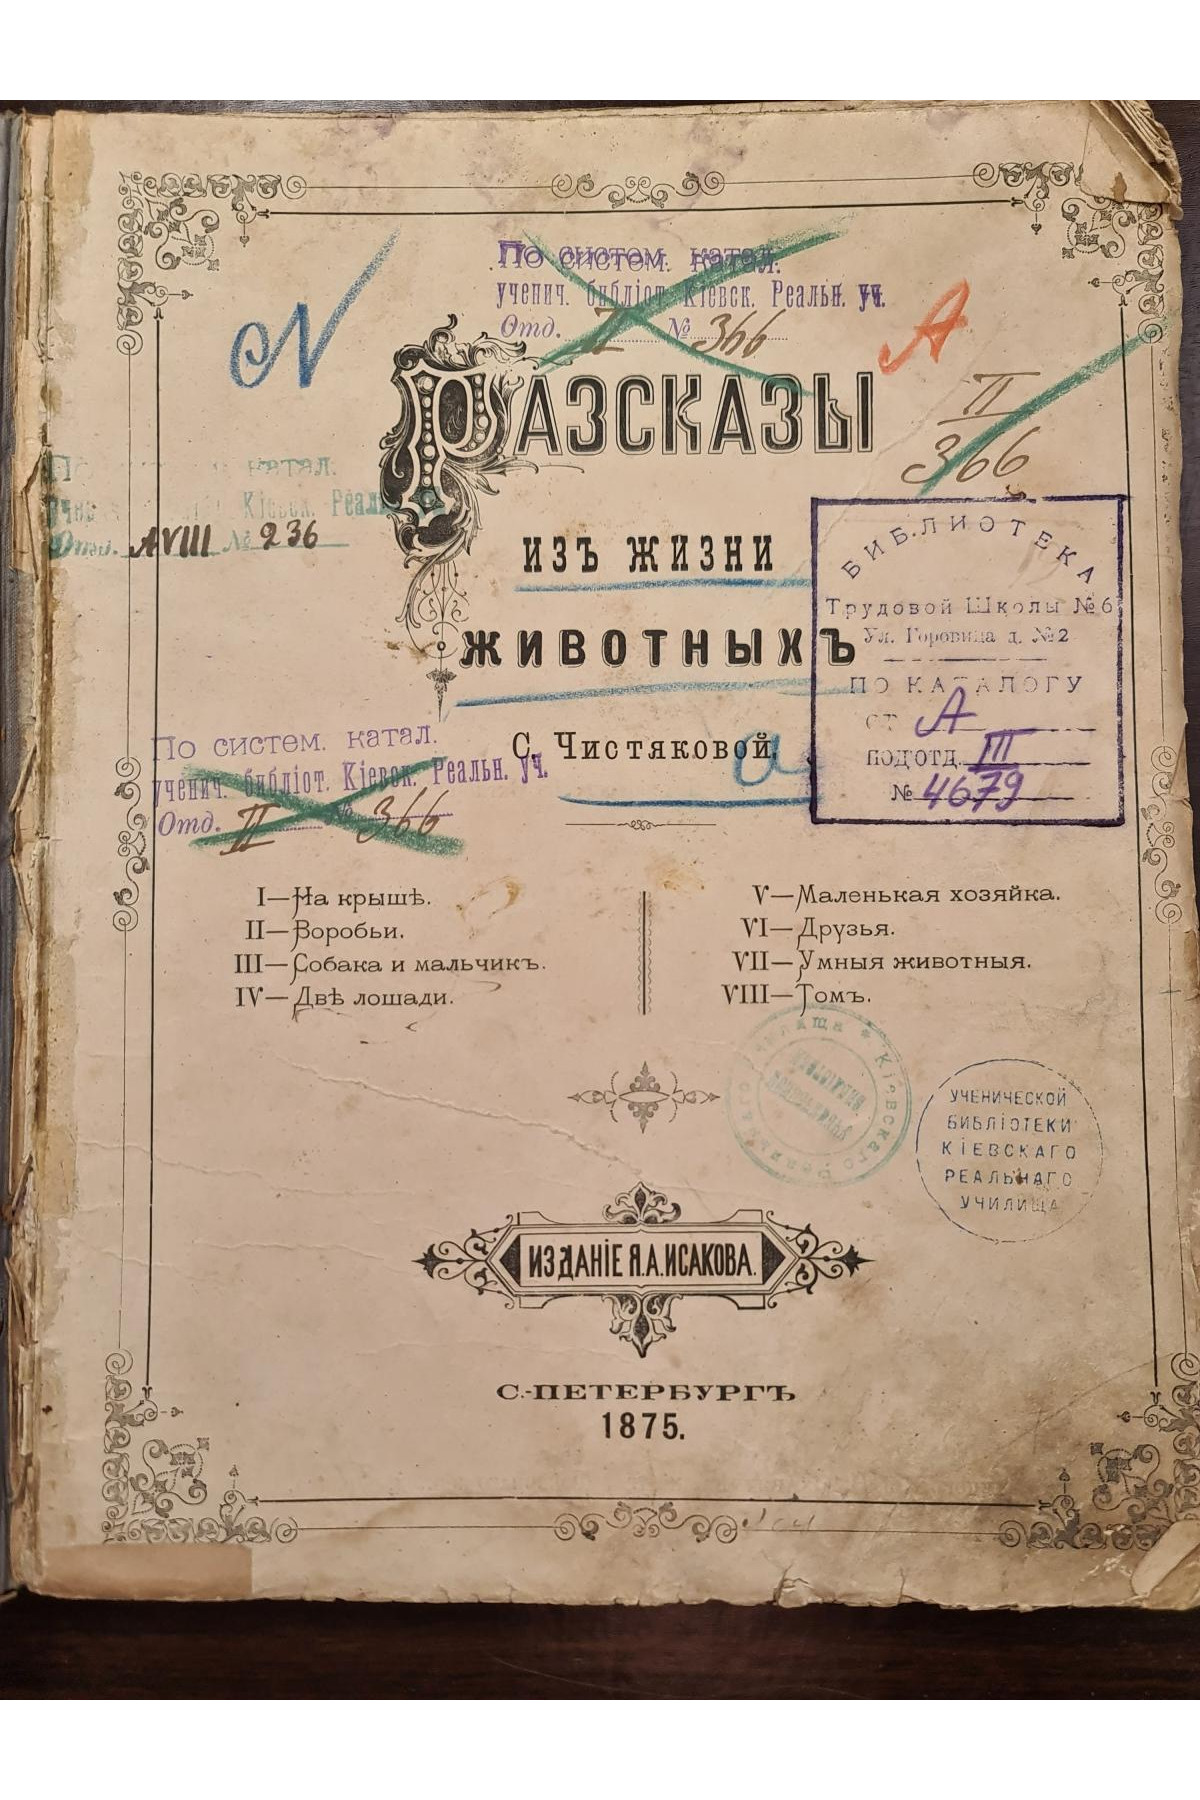 По систем. катал.
ученич. библіот. Кіевск. Реальн. уч.
Отд. II № 366
N
A
II
366
РАЗСКАЗЫ
катал.
Кіевск. Реальн.
Отд. AVIII № 236
ИЗЪ ЖИЗНИ
ЖИВОТНЫХЪ
С. Чистяковой.
а
БИБЛИОТЕКА
Трудовой Школы №6
Ул. Горовица д. №2
ПО КАТАЛОГУ
ОТ А
ПОДОТД. III
№ 4679
По систем. катал.
ученич. библіот. Кіевск. Реальн. уч.
Отд. II № 366
I—На крышѣ.
II—Воробьи.
III—Собака и мальчикъ.
IV—Двѣ лошади.
V—Маленькая хозяйка.
VI—Друзья.
VII—Умныя животныя.
VIII—Томъ.
Кіевскаго
УЧЕНИЧЕСКОЙ
БИБЛІОТЕКИ
КІЕВСКАГО
РЕАЛЬНАГО
УЧИЛИЩА
ИЗДАНІЕ Я.А.ИСАКОВА.
С.-ПЕТЕРБУРГЪ
1875.